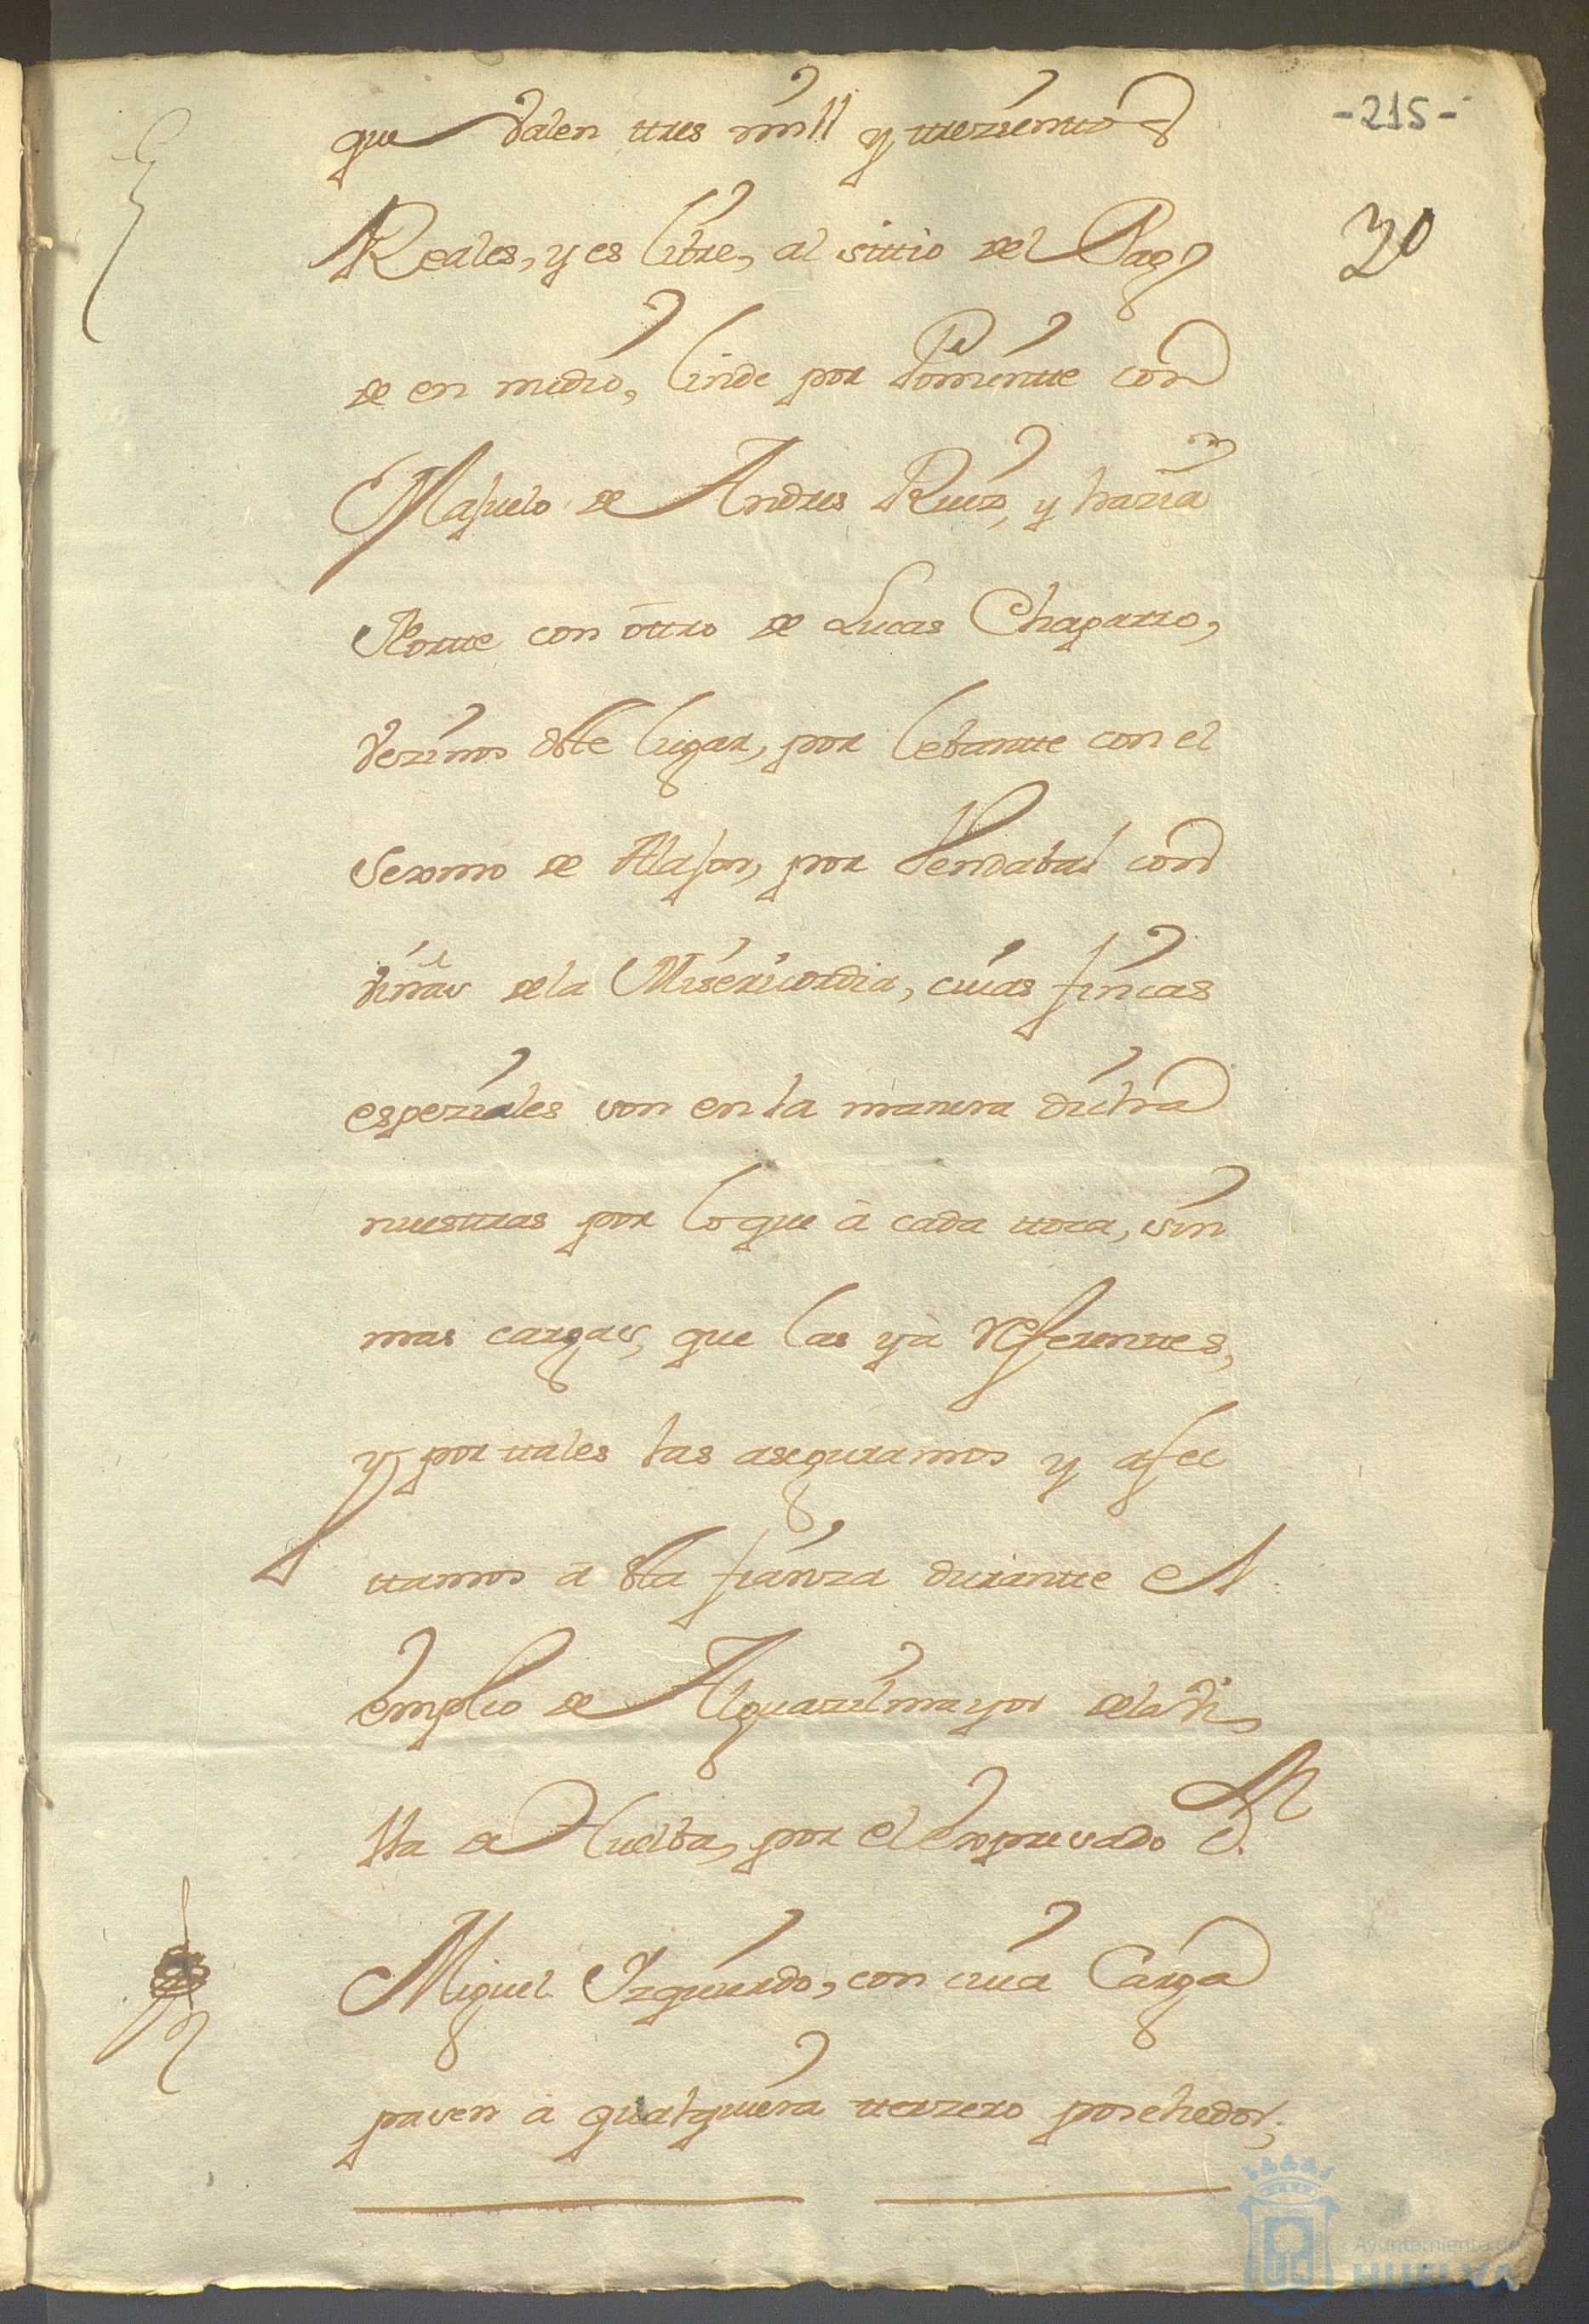 -215-
30
que valen ttres mill y ttrezienttos
Reales, y es libre, al sittio del Pago
de en medio, linde por Ponientte con
Majuelo de Andres Ruiz, y hazia
Nortte con ottro de Lucas Chaparro,
vezinos deste lugar, por lebantte con el
Sexmo de Aljaraque, por Vendabal con
viñas de la Misericordia, cuias fincas
espeziales son en la manera dicha
nuestras por lo que à cada ttoca, sin
mas cargas, que las yà referenttes,
y por ttales las aseguramos y afec
ttamos à esta fianza durantte el
empleo de Alguazilmayor de la Vi
lla de Huelba, por el expresado Dn.
Miguel Izquierdo, con cuia Carga
pasen à qualquiera tterzero posehedor;
Ayuntamiento de
HUELVA